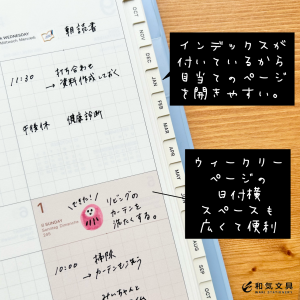 WEDNESDAY
朝読書
11:30 打ち合わせ
→資料作成しておく
午後休 健康診断
1
SUNDAY
できた!
リビングの
カーテンを
洗たくする。
10:00 掃除
→カーテンもこう
OCT
NOV
DEC
JAN
FEB
MAR
APR
MAY
JUN
JUL
AUG
SEP
OCT
NOV
DEC
インデックスが
付いているから
目当てのページ
を開きやすい。
ウィークリー
ページの
日付横
スペースも
広くて便利
和気文具